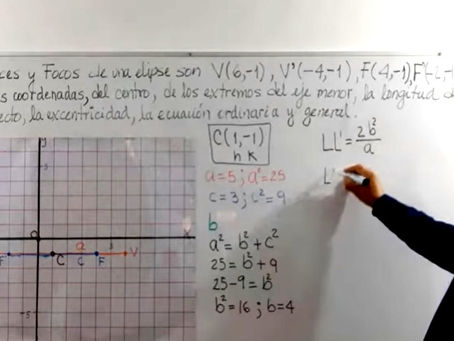 ces y Focos de una elipse son V(6,-1), V'(-4,-1), F(4,-1), F'(-2,-1
s coordenadas, del centro, de los extremos del eje menor, la longitud d
ecto, la excentricidad, la ecuación ordinaria y general.
C(1,-1)
h K
a=5; a²=25
c=3; c²=9
b
a²=b²+c²
25=b²+9
25-9=b²
b²=16; b=4
LL'=2b²/a
L
y
0
x
a
F C c F V
-5